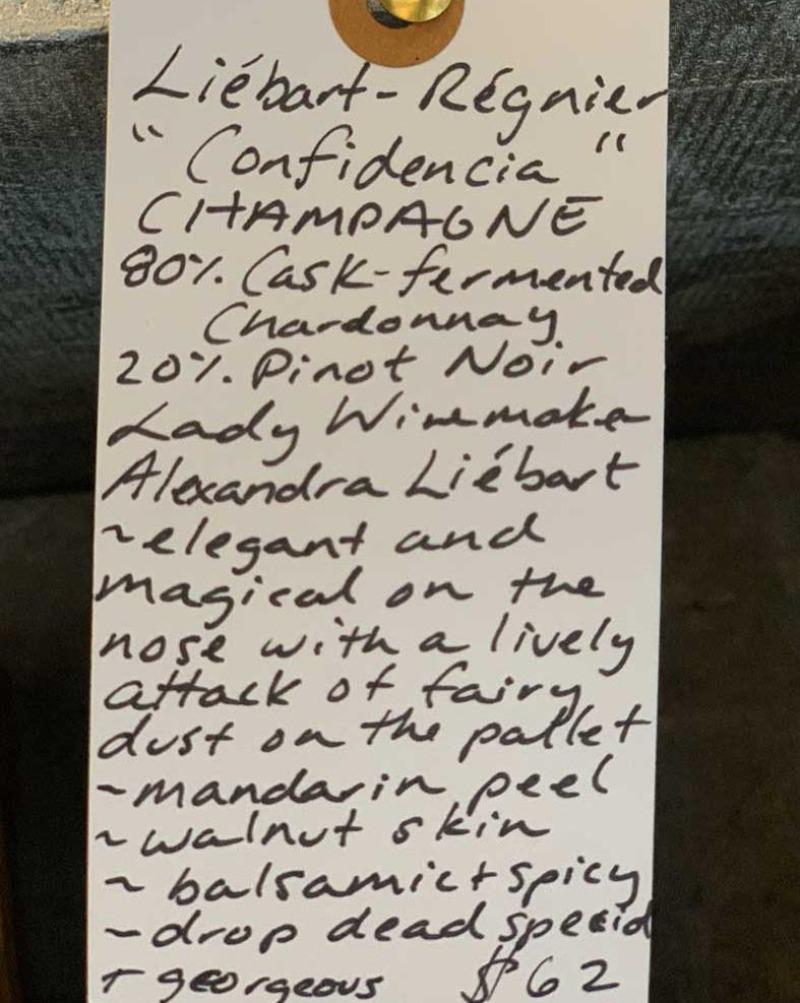 Liébart-Régnier
"Confidencia"
CHAMPAGNE
80% Cask-fermented
Chardonnay
20% Pinot Noir
Lady Winemaker
Alexandra Liébart
~elegant and
magical on the
nose with a lively
attack of fairy
dust on the pallet
~mandarin peel
~walnut skin
~balsamic + spicy
~drop dead special
+ georgeous $62